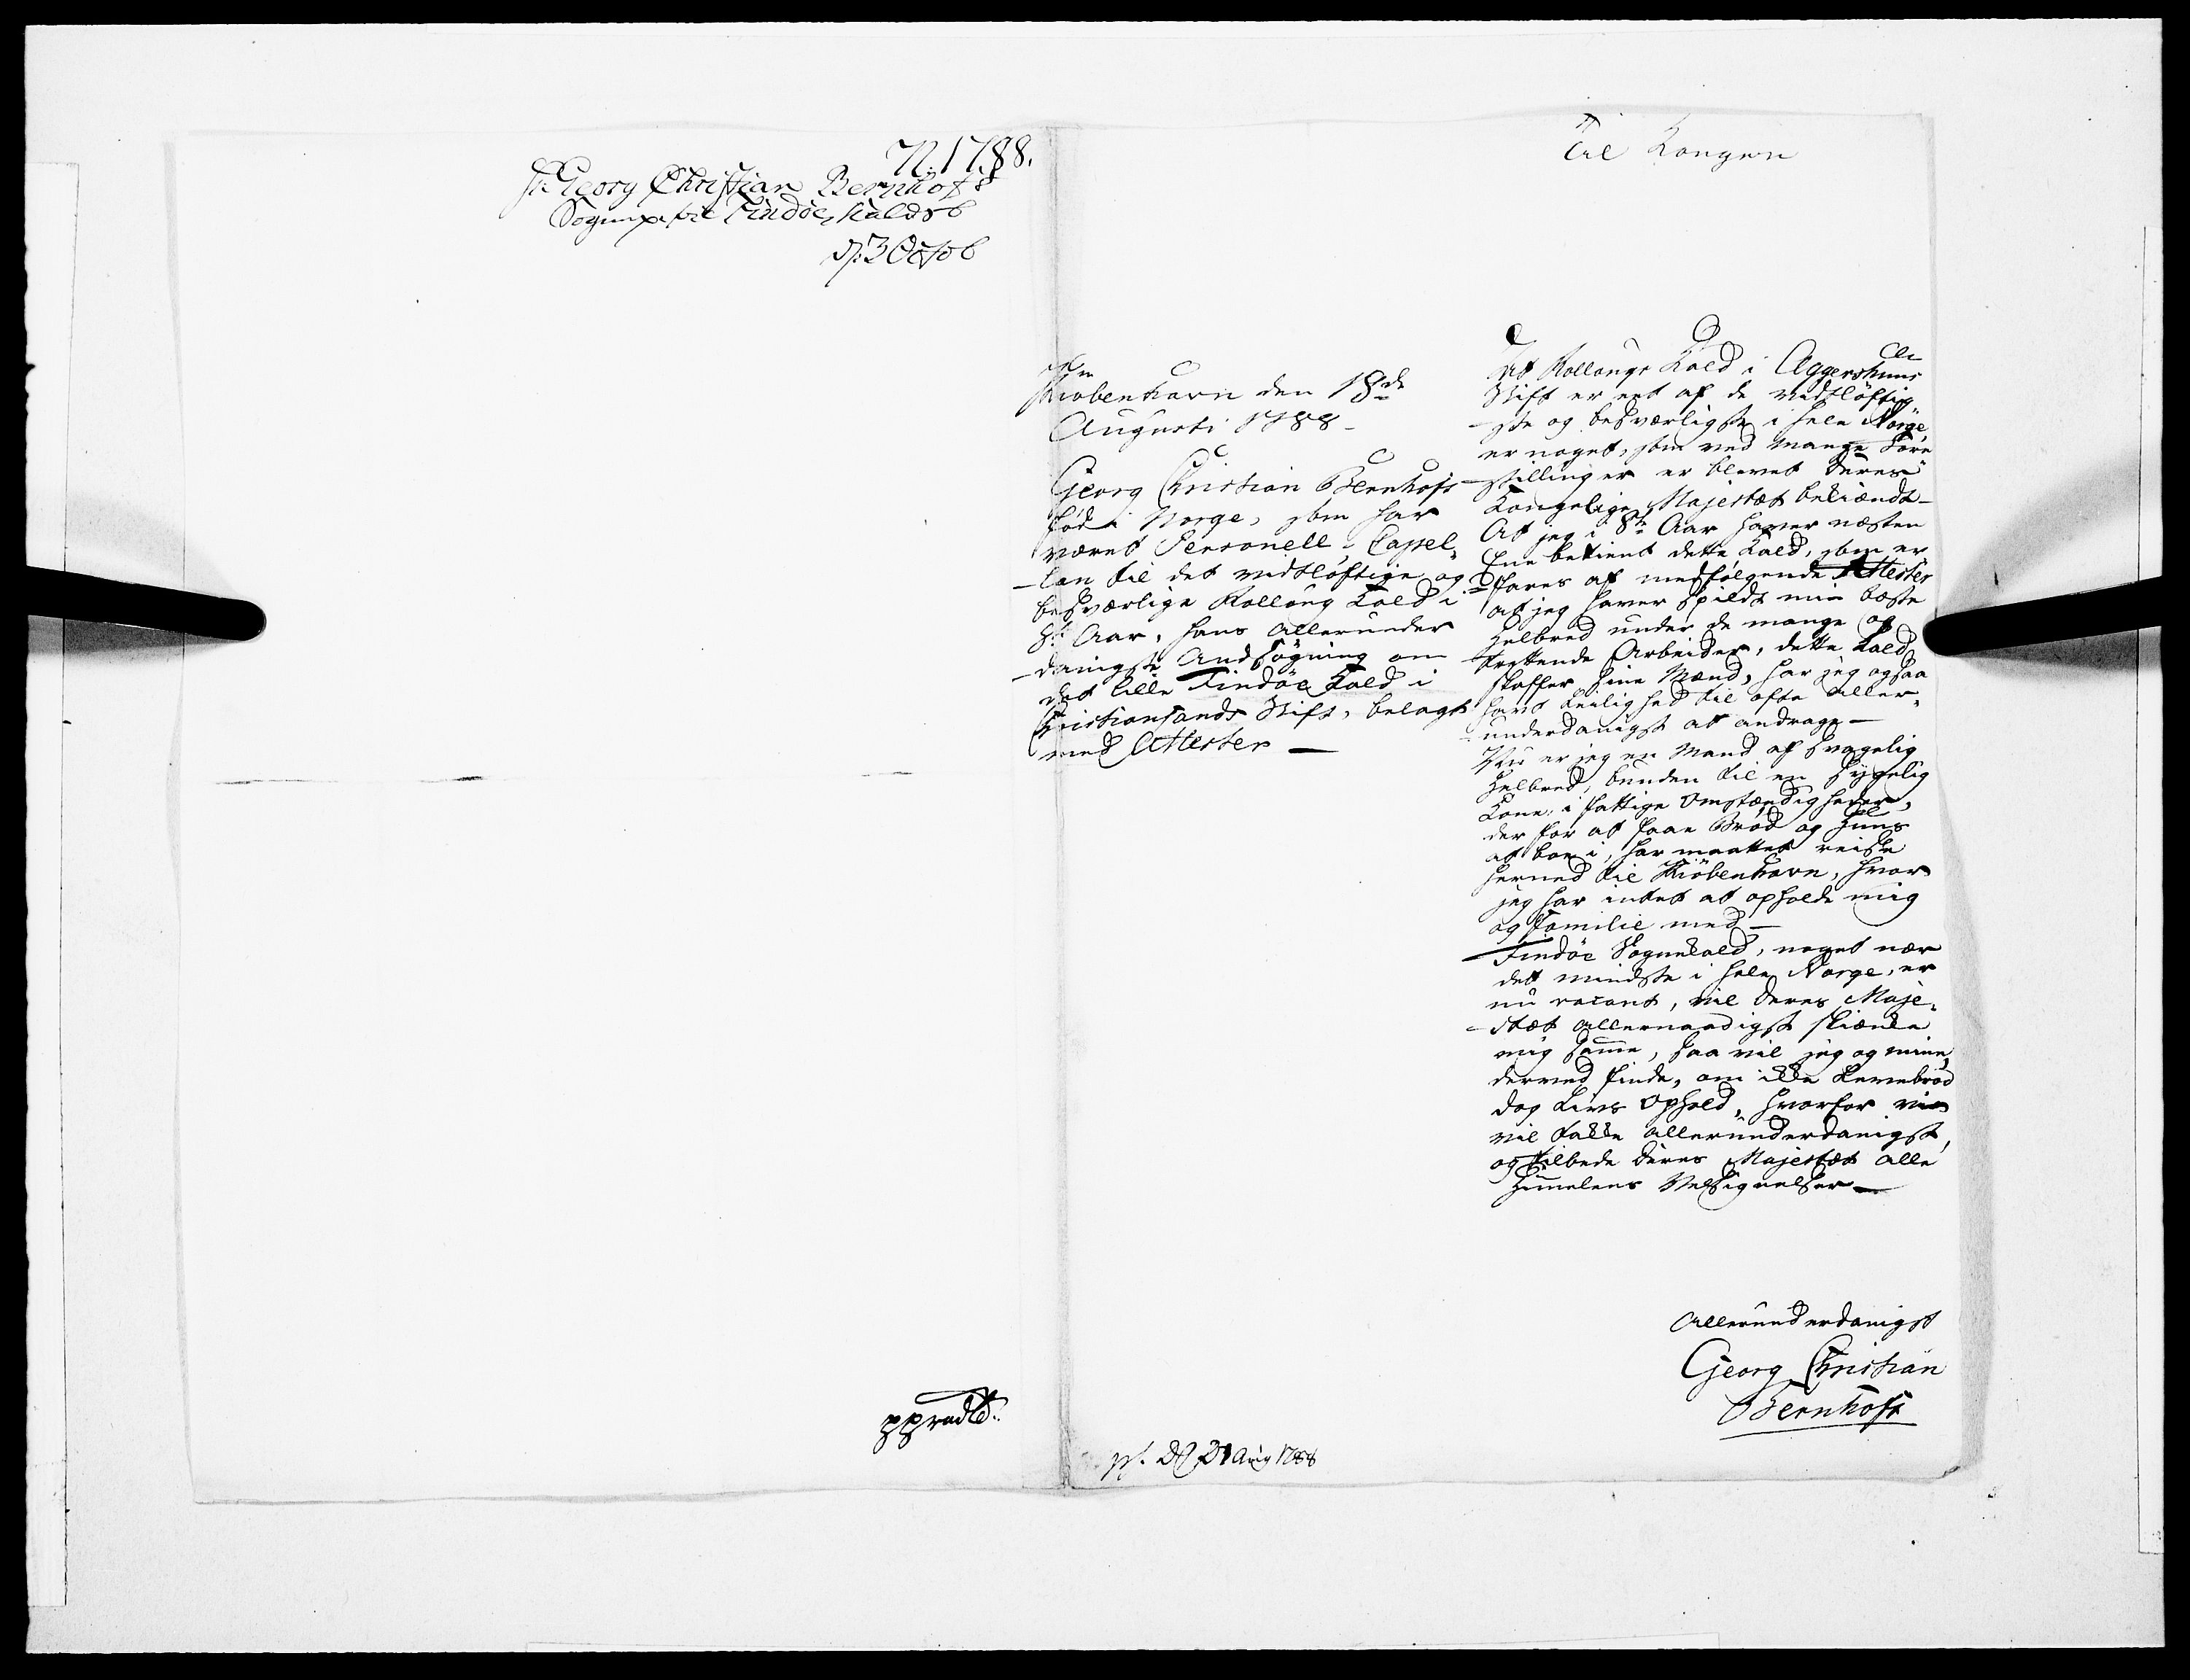 N. 1788.
Hr. Georg Christian Bernhoft
Sognepr. til Findöe Kald
d: 3 Octob
pprodtd.
Kiöbenhavn den 18de
Augusti 1788 -
Georg Christian Bernhoft
föd i Norge, som har
været Personell Capel-
-lan til det vidtlöftige og
besværlige Kollung Kald i
8te Aar, hans allerunder
-danigste Ansögning om
det lille Findöe Kald i
Christiansands Stift, belagt
med Attester -
Til Kongen
At Kollungs Kald i Aggershuus
Stift er eet af de vidtlöftig
-ste og besværligste i hele Norge,
er noget, som ved mange Fore
-stillinger er blevet Deres
Kongelige Majestæt bekiændt -
At jeg i 8te Aar haver næsten
Ene betient dette Kald, som er
-fares af medfölgende Attester
at jeg haver spildt min bæste
Helbred under de mange og
-trættende Arbeider, dette Kald
skaffer sine Mænd, har jeg ogsaa
havt Leilighed til ofte aller-
-underdanigst at andrage -
Nu er jeg en Mand af svagelig
Helbred, bunden til en sygelig
Kone, i fattige Omstændigheder,
der for at faae Bröd og Huus
at boe i, har maattet reise
herned til Kiöbenhavn, hvor
jeg har intet at opholde mig
og Familie med -
Findöe Sognekald, noget nær
det mindste i hele Norge, er
nu vacant, vil Deres Maje-
-stæt allernaadigst skiænke
mig samme, saa vil jeg og mine,
derved finde, om ikke Levebröd
dog Livs Ophold, hvorfor vi
vil takke allerunderdanigst,
og tilbede Deres Majestæt alle
Himelens Velsignelser -
Allerunderdanigst
Georg Christian
Bernhoft
21 Aug 1788